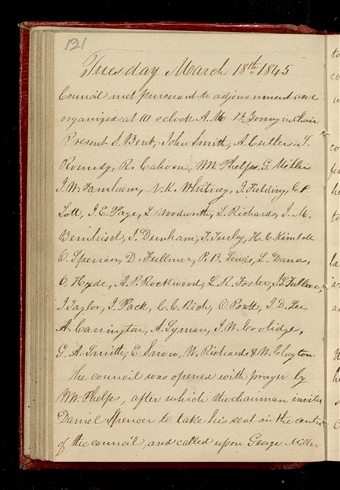 121
Tuesday March 18th 1845
Council met pursuant to adjournment and
organized at 10 oclock A.M. B. Young in chair
Present S. Bent, John Smith, A. Cutler, S.
Roundy, R. Cahoon, W.W. Phelps, G. Miller
J.W. Farnham, N.K. Whitney, J. Fielding, C.P.
Lott, J.E. Page, L. Woodworth, L. Richards, J.M.
Bernhisel, J. Dunham, T. Turley, H.C. Kimball
O. Spencer, D. Fullmer, P.B. Lewis, L. Dana,
O. Hyde, A.P. Rockwood, L.R. Foster, J.S. Fullmer,
J. Taylor, J. Pack, C.C. Rich, O. Pratt, J.D. Lee
A. Carrington, A. Lyman, J.W. Coolidge,
G.A. Smith, E. Snow, W. Richards & W. Clayton
The council was opened with prayer by
W.W. Phelps, after which the chairman invited
Daniel Spencer to take his seat in the centre
of the council, and called upon George Miller